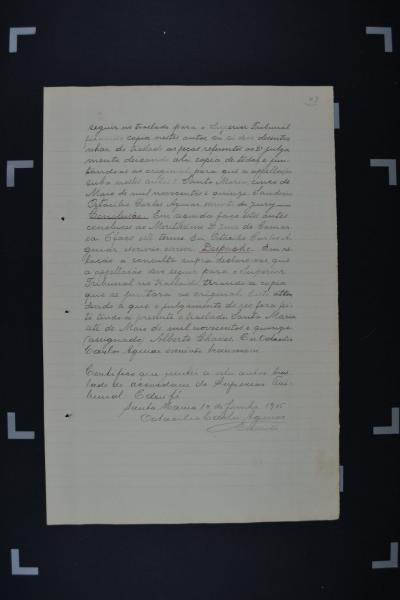 seguir no traslado para o Superior Tribunal
copia nestes autos ou si devo desentra
nhar do traslado as peças referentes ao 2º julga
mento deixando ahi copia de todas e jun
tando-as ao original para que a appellação
suba nestes autos. Santa Maria, cinco de
Maio de mil novecentos e quinze. O escrivão
Octacilio Carlos Aguiar escrivão do jury.
Conclusão. Em seguida faço estes autos
conclusos ao Meritissimo Dr. Juiz da Comar
ca. E faço este termo. Eu Octacilio Carlos A
guiar escrivão escrevi. Despacho. Em re
lação a consulta supra declaro-vos que
a appellação deve seguir para o Superior
Tribunal no traslado, tirando-se copia
que se juntará no original. Isto atten
dendo a que o julgamento do réo fora fei
to tendo-se presente o traslado. Santa Maria
de Maio de mil novecentos e quinze
(assignado) Alberto Chaves. Eu Octacilio
Carlos Aguiar escrivão transcrevi.
Certifico que recebi e estes autos tras
lado de accordam do Superior Tri
bunal. E dou fé.
Santa Maria 1º de Junho 1915
Octacilio Carlos Aguiar